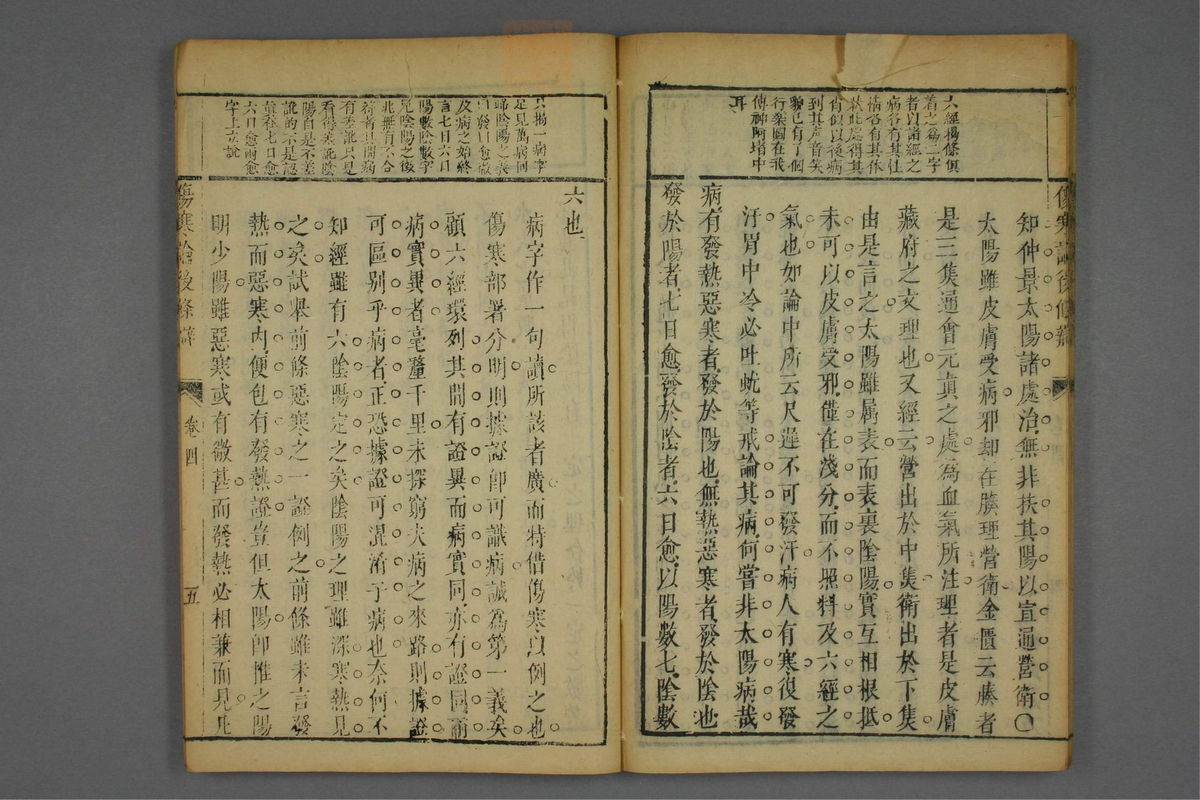 傷寒論後條辯
六經揭條俱
着之為二字
者以諸經之
病各有其仕
情各有其体
狀此處得其
肖似以後病
到其聲音矣
貌已有了個
行樂圖在我
傳神阿堵中
耳
知仲景太陽諸處治無非扶其陽以宣通營衛〇
太陽雖皮膚受病邪却在腠理營衛金匱云腠者
是三集通會元真之處為血氣所注理者是皮膚
藏府之文理也又經云營出於中集衛出於下集
由是言之太陽雖属表而表裏陰陽實互相根抵
未可以皮膚受邪僅在淺分而不照料及六經之
氣也如論中所云尺遲不可發汗病人有寒復發
汗胃中冷必吐蚘等戒論其病何嘗非太陽病哉
病有發熱惡寒者發於陽也無熱惡寒者發於陰也
發於陽者七日愈發於陰者六日愈以陽數七陰數
只揭一病字
足見萬病何
歸陰陽之表
曰發曰愈徹
及病之始終
言七日六日
陽數陰數字
見陰陽之徵
兆無有不合
符者其間病
有乖訛只見
看得乖訛陰
陽自是不差
訛的不是認
真在七日愈
六日愈兩愈
字上立說
六也
病字作一句讀所該者廣而特借傷寒以例之也
傷寒部署分明則據證即可識病誠為第一義矣
顧六經環列其間有證異而病實同亦有證同而
病實異者毫釐千里未探窮夫病之來路則據證
可區別乎病者正恐據證可混淆于病也奈何不
知經雖有六陰陽定之矣陰陽之理雖深寒熱見
之矣試舉前條惡寒之一證例之前條雖未言發
熱而惡寒內便包有發熱證豈但太陽即惟之陽
明少陽雖惡寒或有微甚而發熱必相兼而見凡
傷寒論後條辯
卷四
五